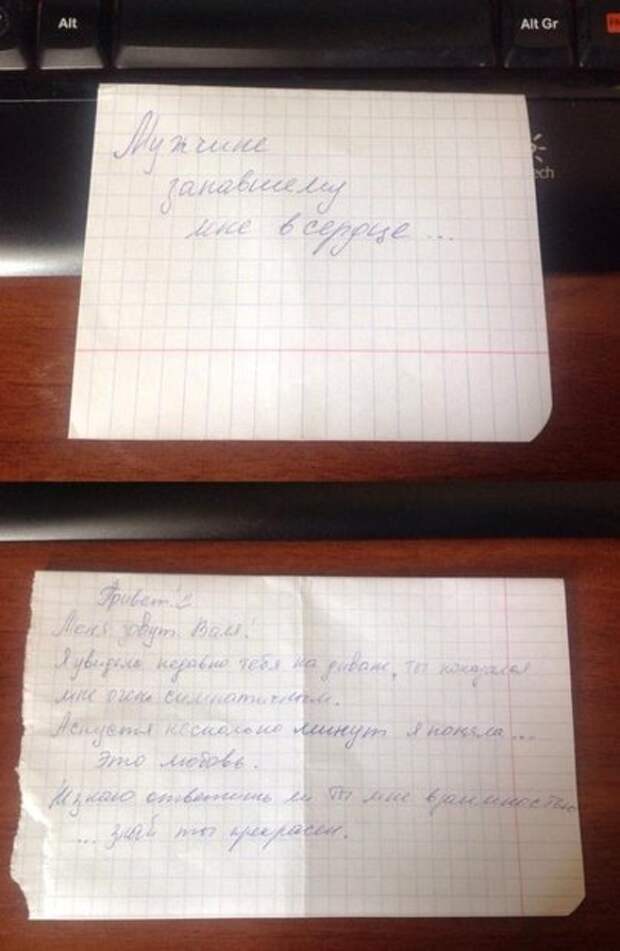 Alt
Alt Gr
ech
Мужчине
запавшему
мне в сердце...
Привет!
Меня зовут Валя!
Я увидела недавно тебя на диване, ты показался
мне очень симпатичным.
А спустя несколько минут я поняла...
Это любовь.
Не знаю ответишь ли ты мне взаимностью
... знай ты прекрасен.